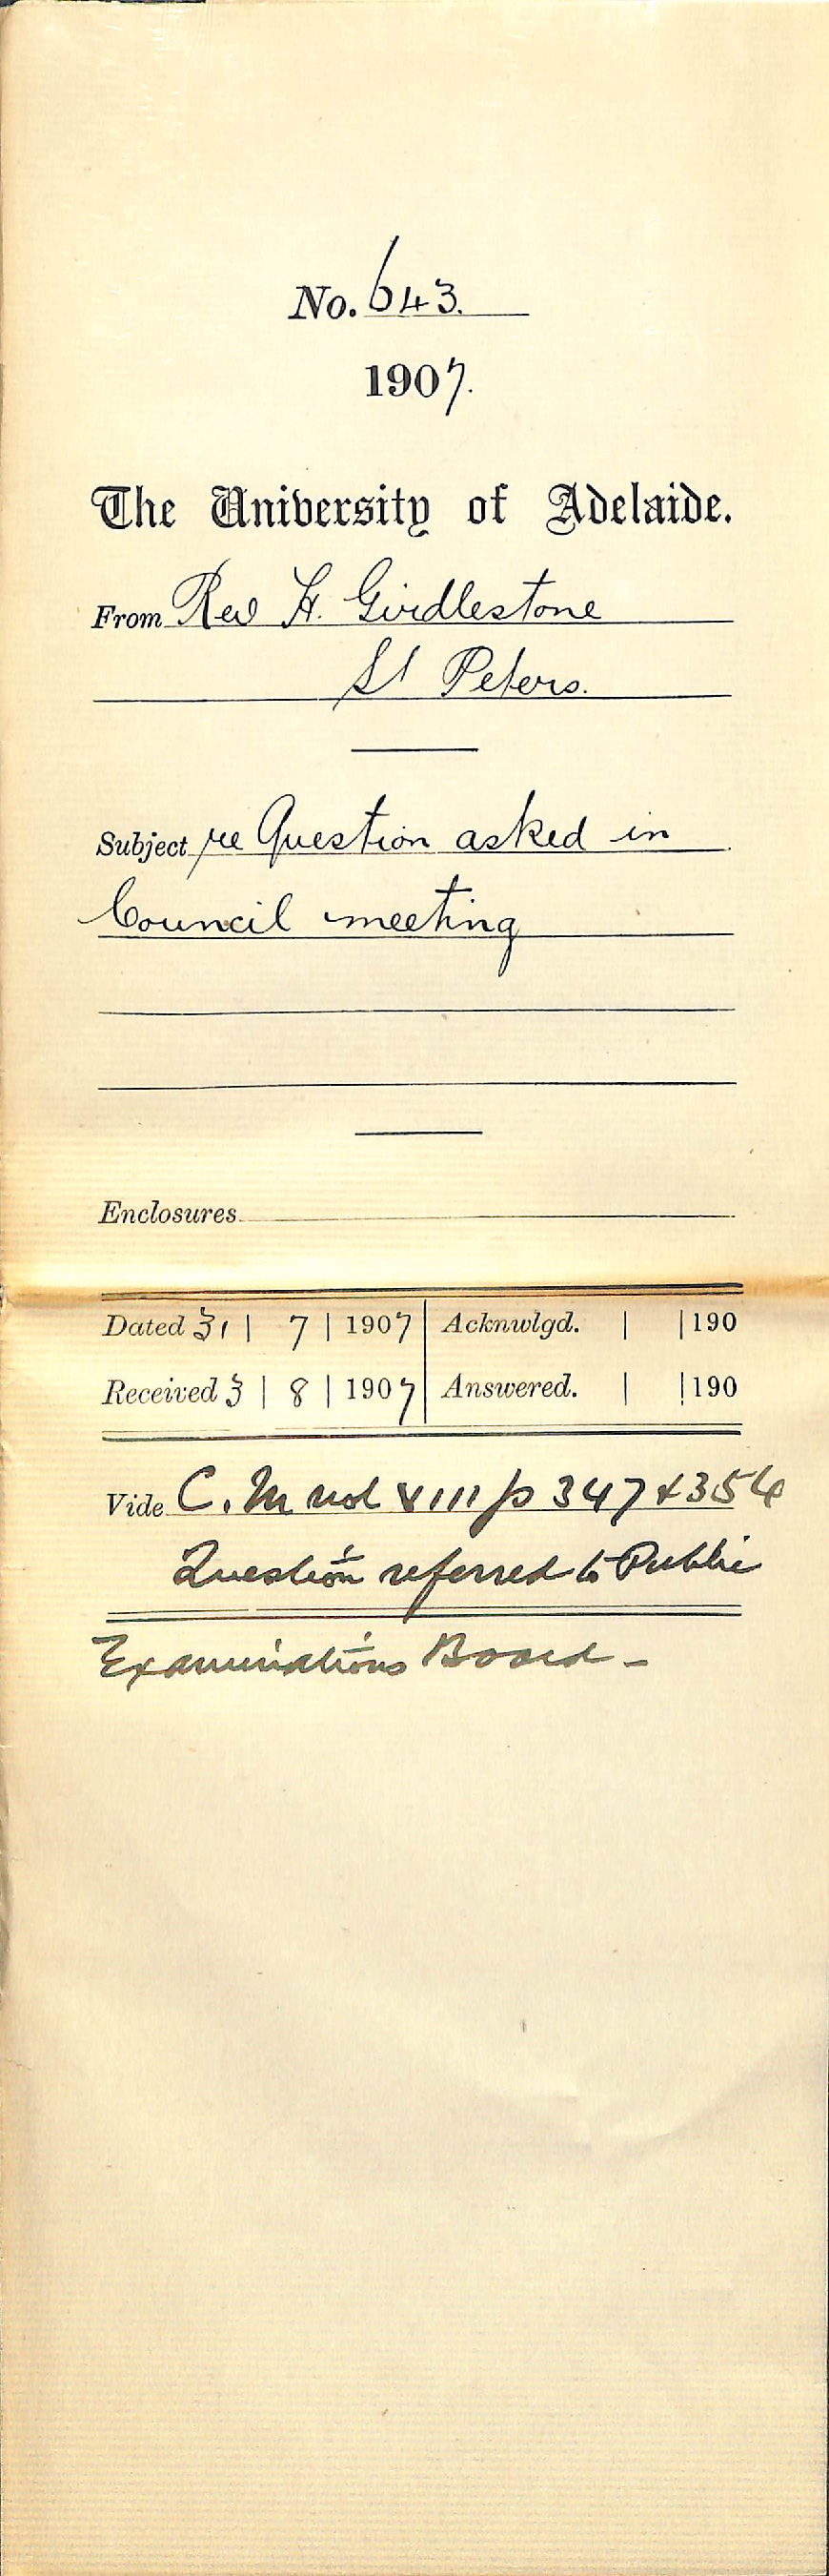 No. 643.
1907.
The University of Adelaide.
From Rev H. Girdlestone
St Peters.
Subject re Question asked in
Council meeting
Enclosures
Dated 31 | 7 | 1907 Acknwlgd. | | 190
Received 3 | 8 | 1907 Answered. | | 190
Vide C. M vol VIII p 347 & 354
Question referred to Public
Examinations Board -